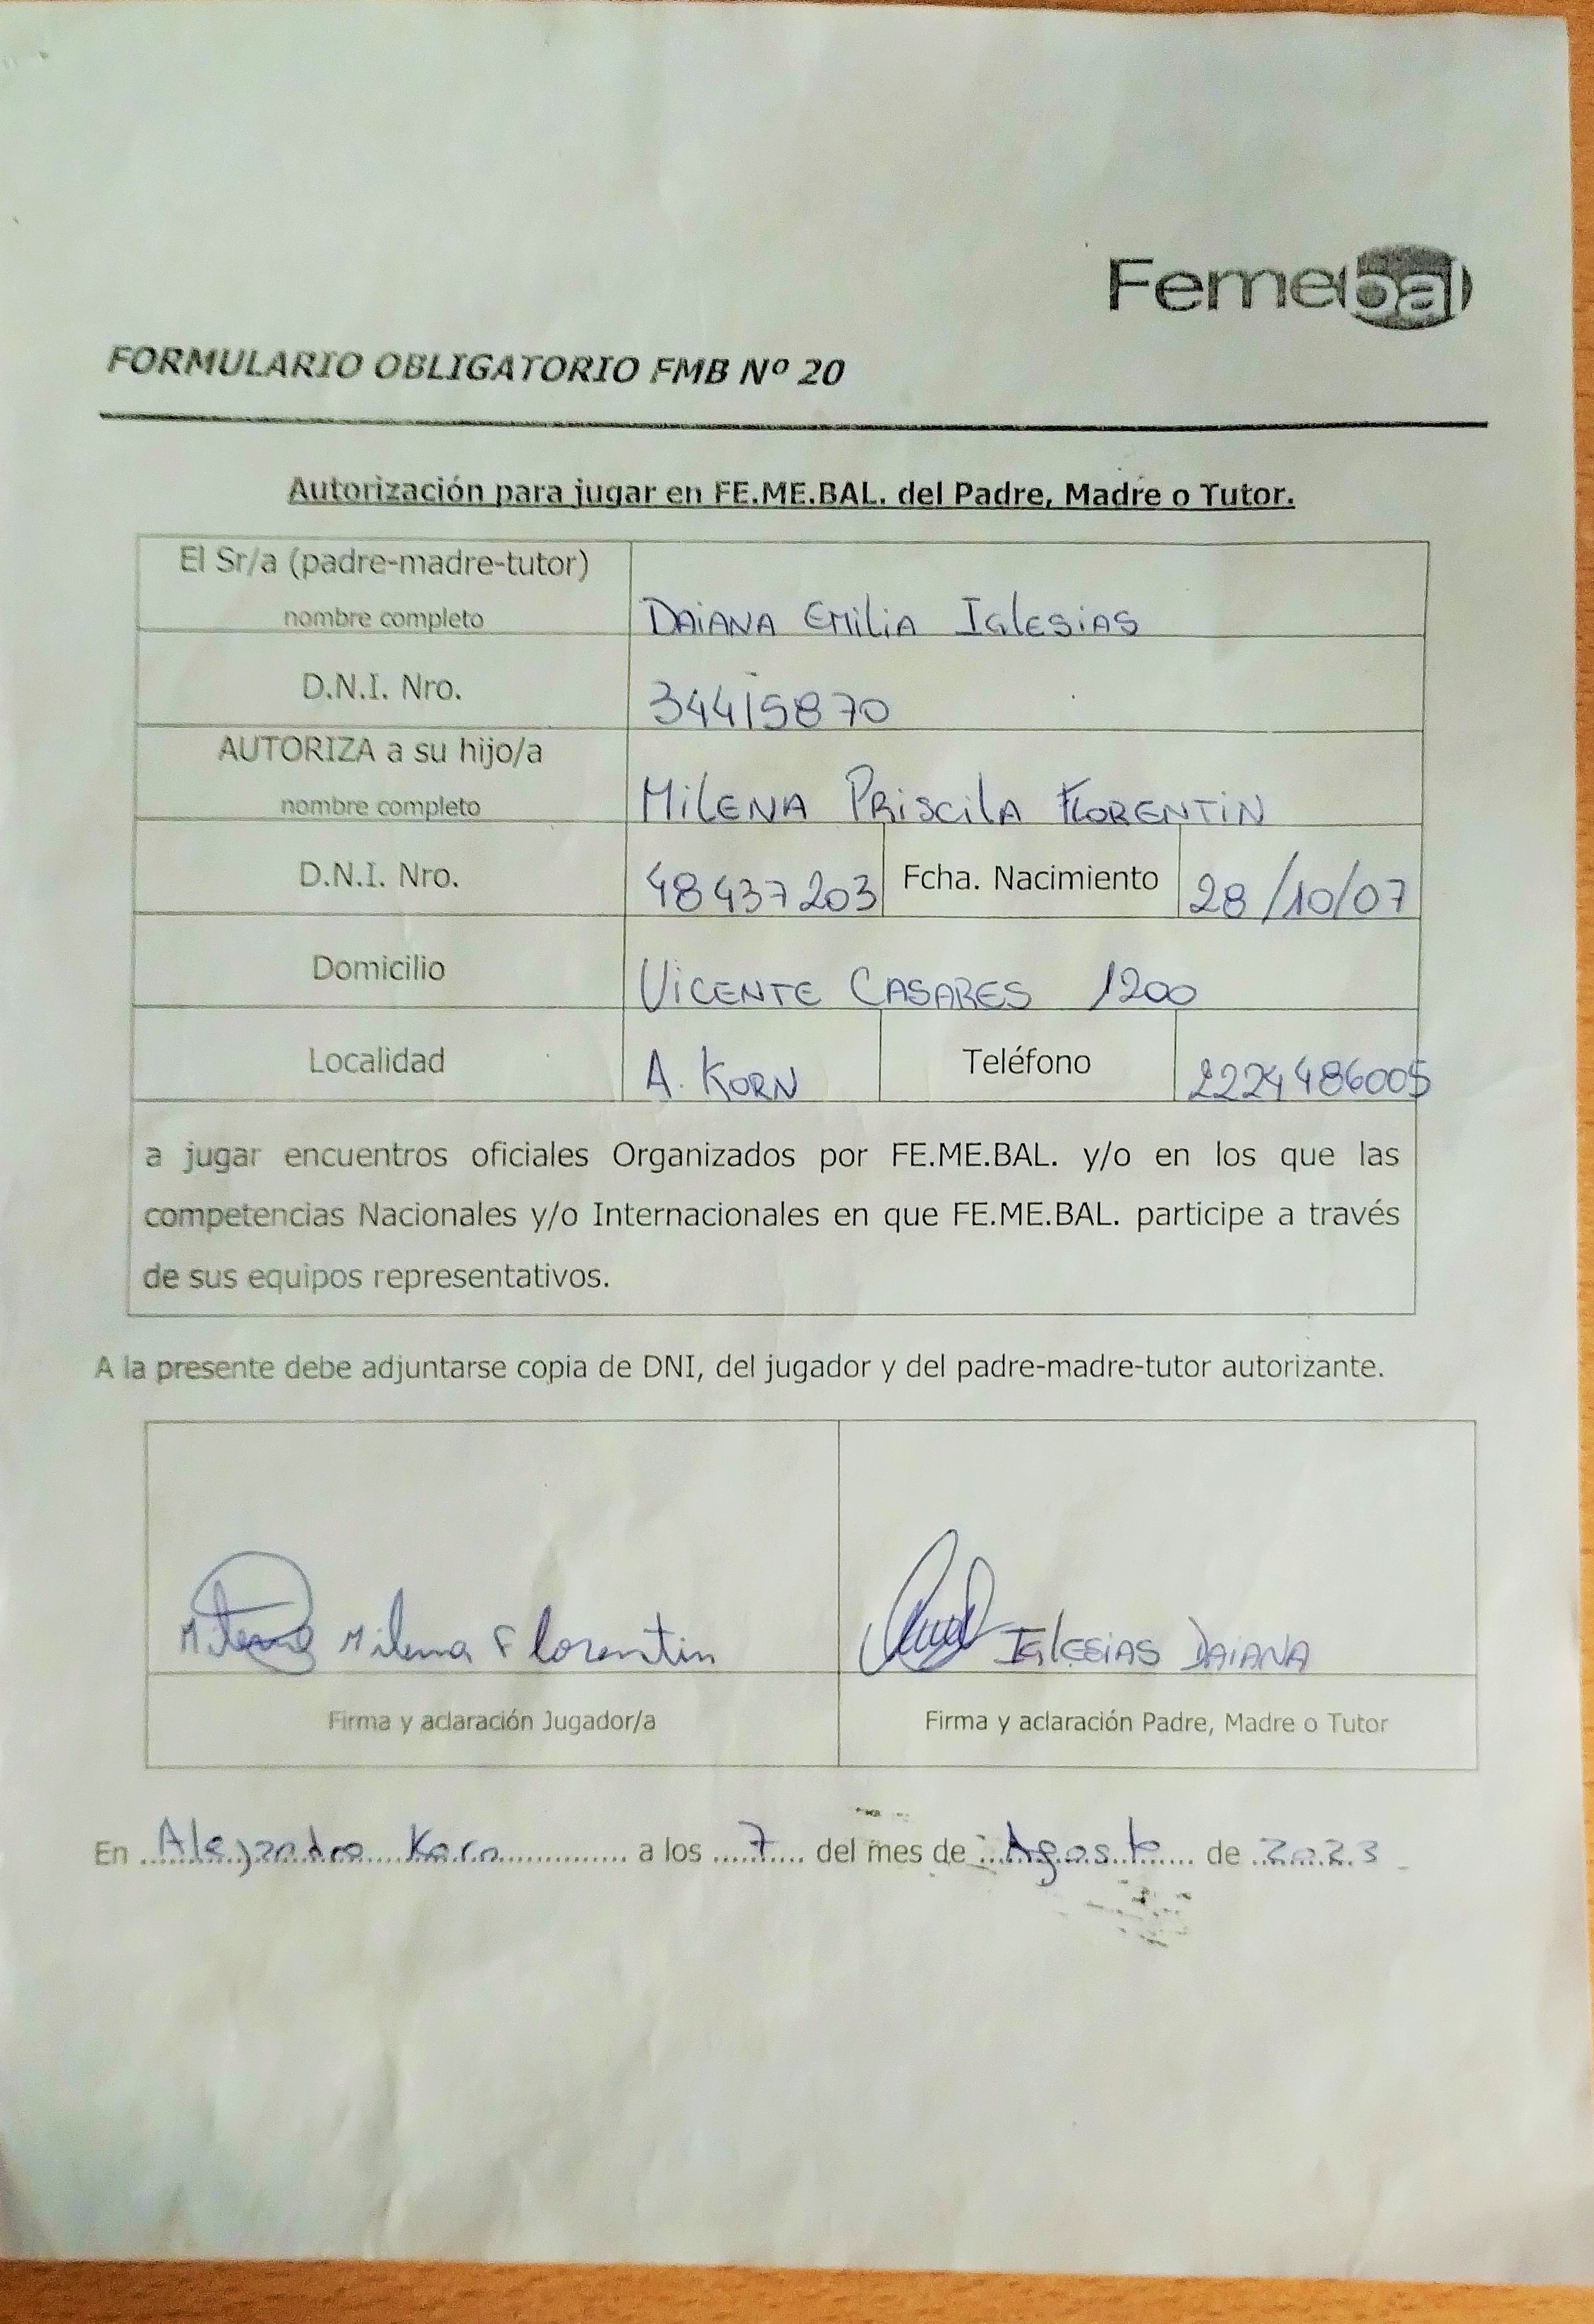 Femebal
FORMULARIO OBLIGATORIO FMB Nº 20
Autorización para jugar en FE.ME.BAL. del Padre, Madre o Tutor.
El Sr/a (padre-madre-tutor)
nombre completo
DAIANA EMILIA IGLESIAS
D.N.I. Nro.
34415870
AUTORIZA a su hijo/a
nombre completo
MILENA PRISCILA FLORENTIN
D.N.I. Nro.
48437203
Fcha. Nacimiento
28/10/07
Domicilio
VICENTE CASARES 1200
Localidad
A. KORN
Teléfono
2224486005
a jugar encuentros oficiales Organizados por FE.ME.BAL. y/o en los que las
competencias Nacionales y/o Internacionales en que FE.ME.BAL. participe a través
de sus equipos representativos.
A la presente debe adjuntarse copia de DNI, del jugador y del padre-madre-tutor autorizante.
Milena Milena Florentin
IGLESIAS DAIANA
Firma y aclaración Jugador/a
Firma y aclaración Padre, Madre o Tutor
En Alejandro Korn a los 7 del mes de Agosto de 2023